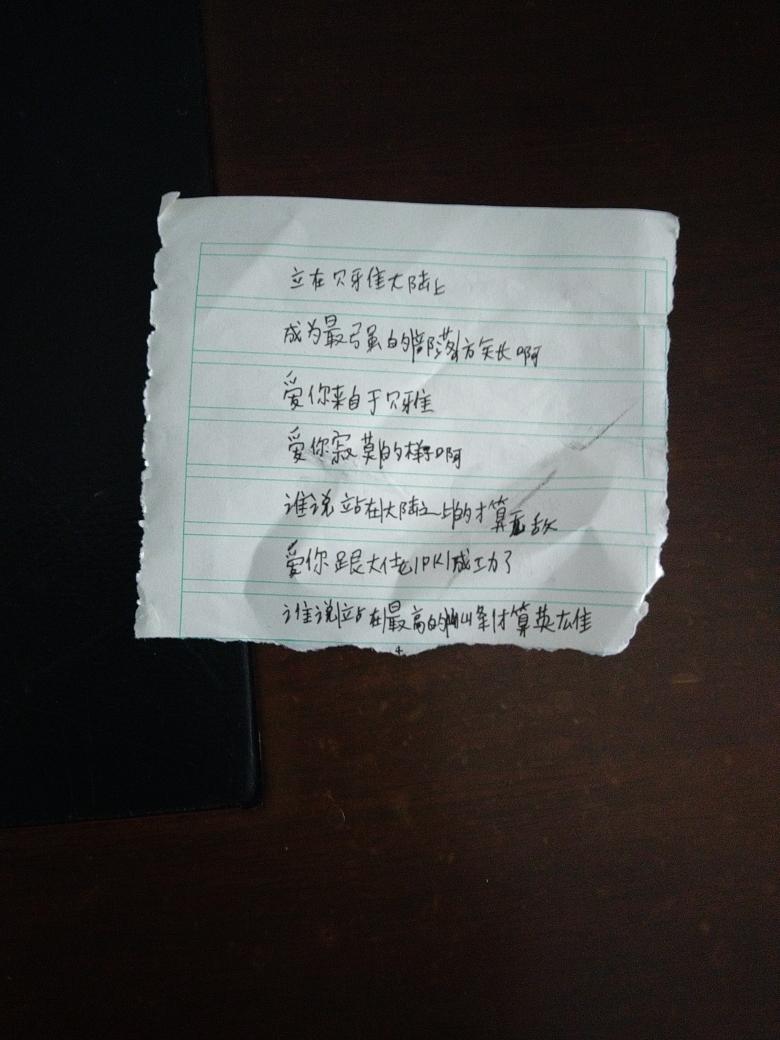 立在贝雅大陆上
成为最强的部落族长啊
爱你来自于贝雅
爱你寂寞的样子啊
谁说站在大陆之上的才算无敌
爱你跟大佬PK成功了
谁说站在最高的山峰才算英雄
4